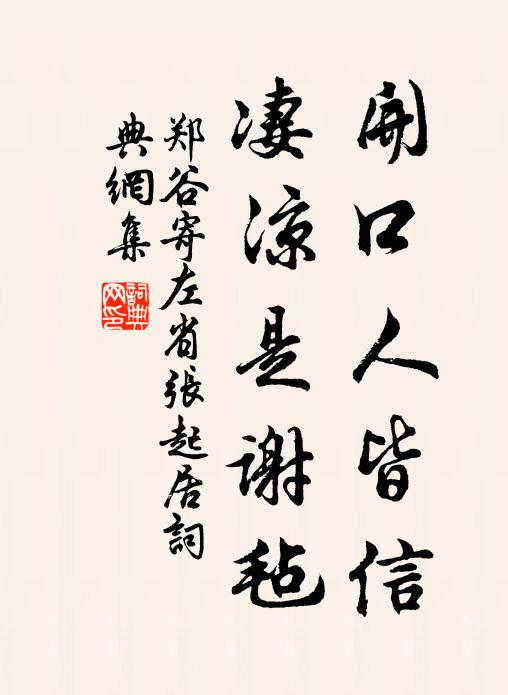 開口人皆信
凄涼是謝毡
郑谷寄左省張起居詞
典網集
詞典网印